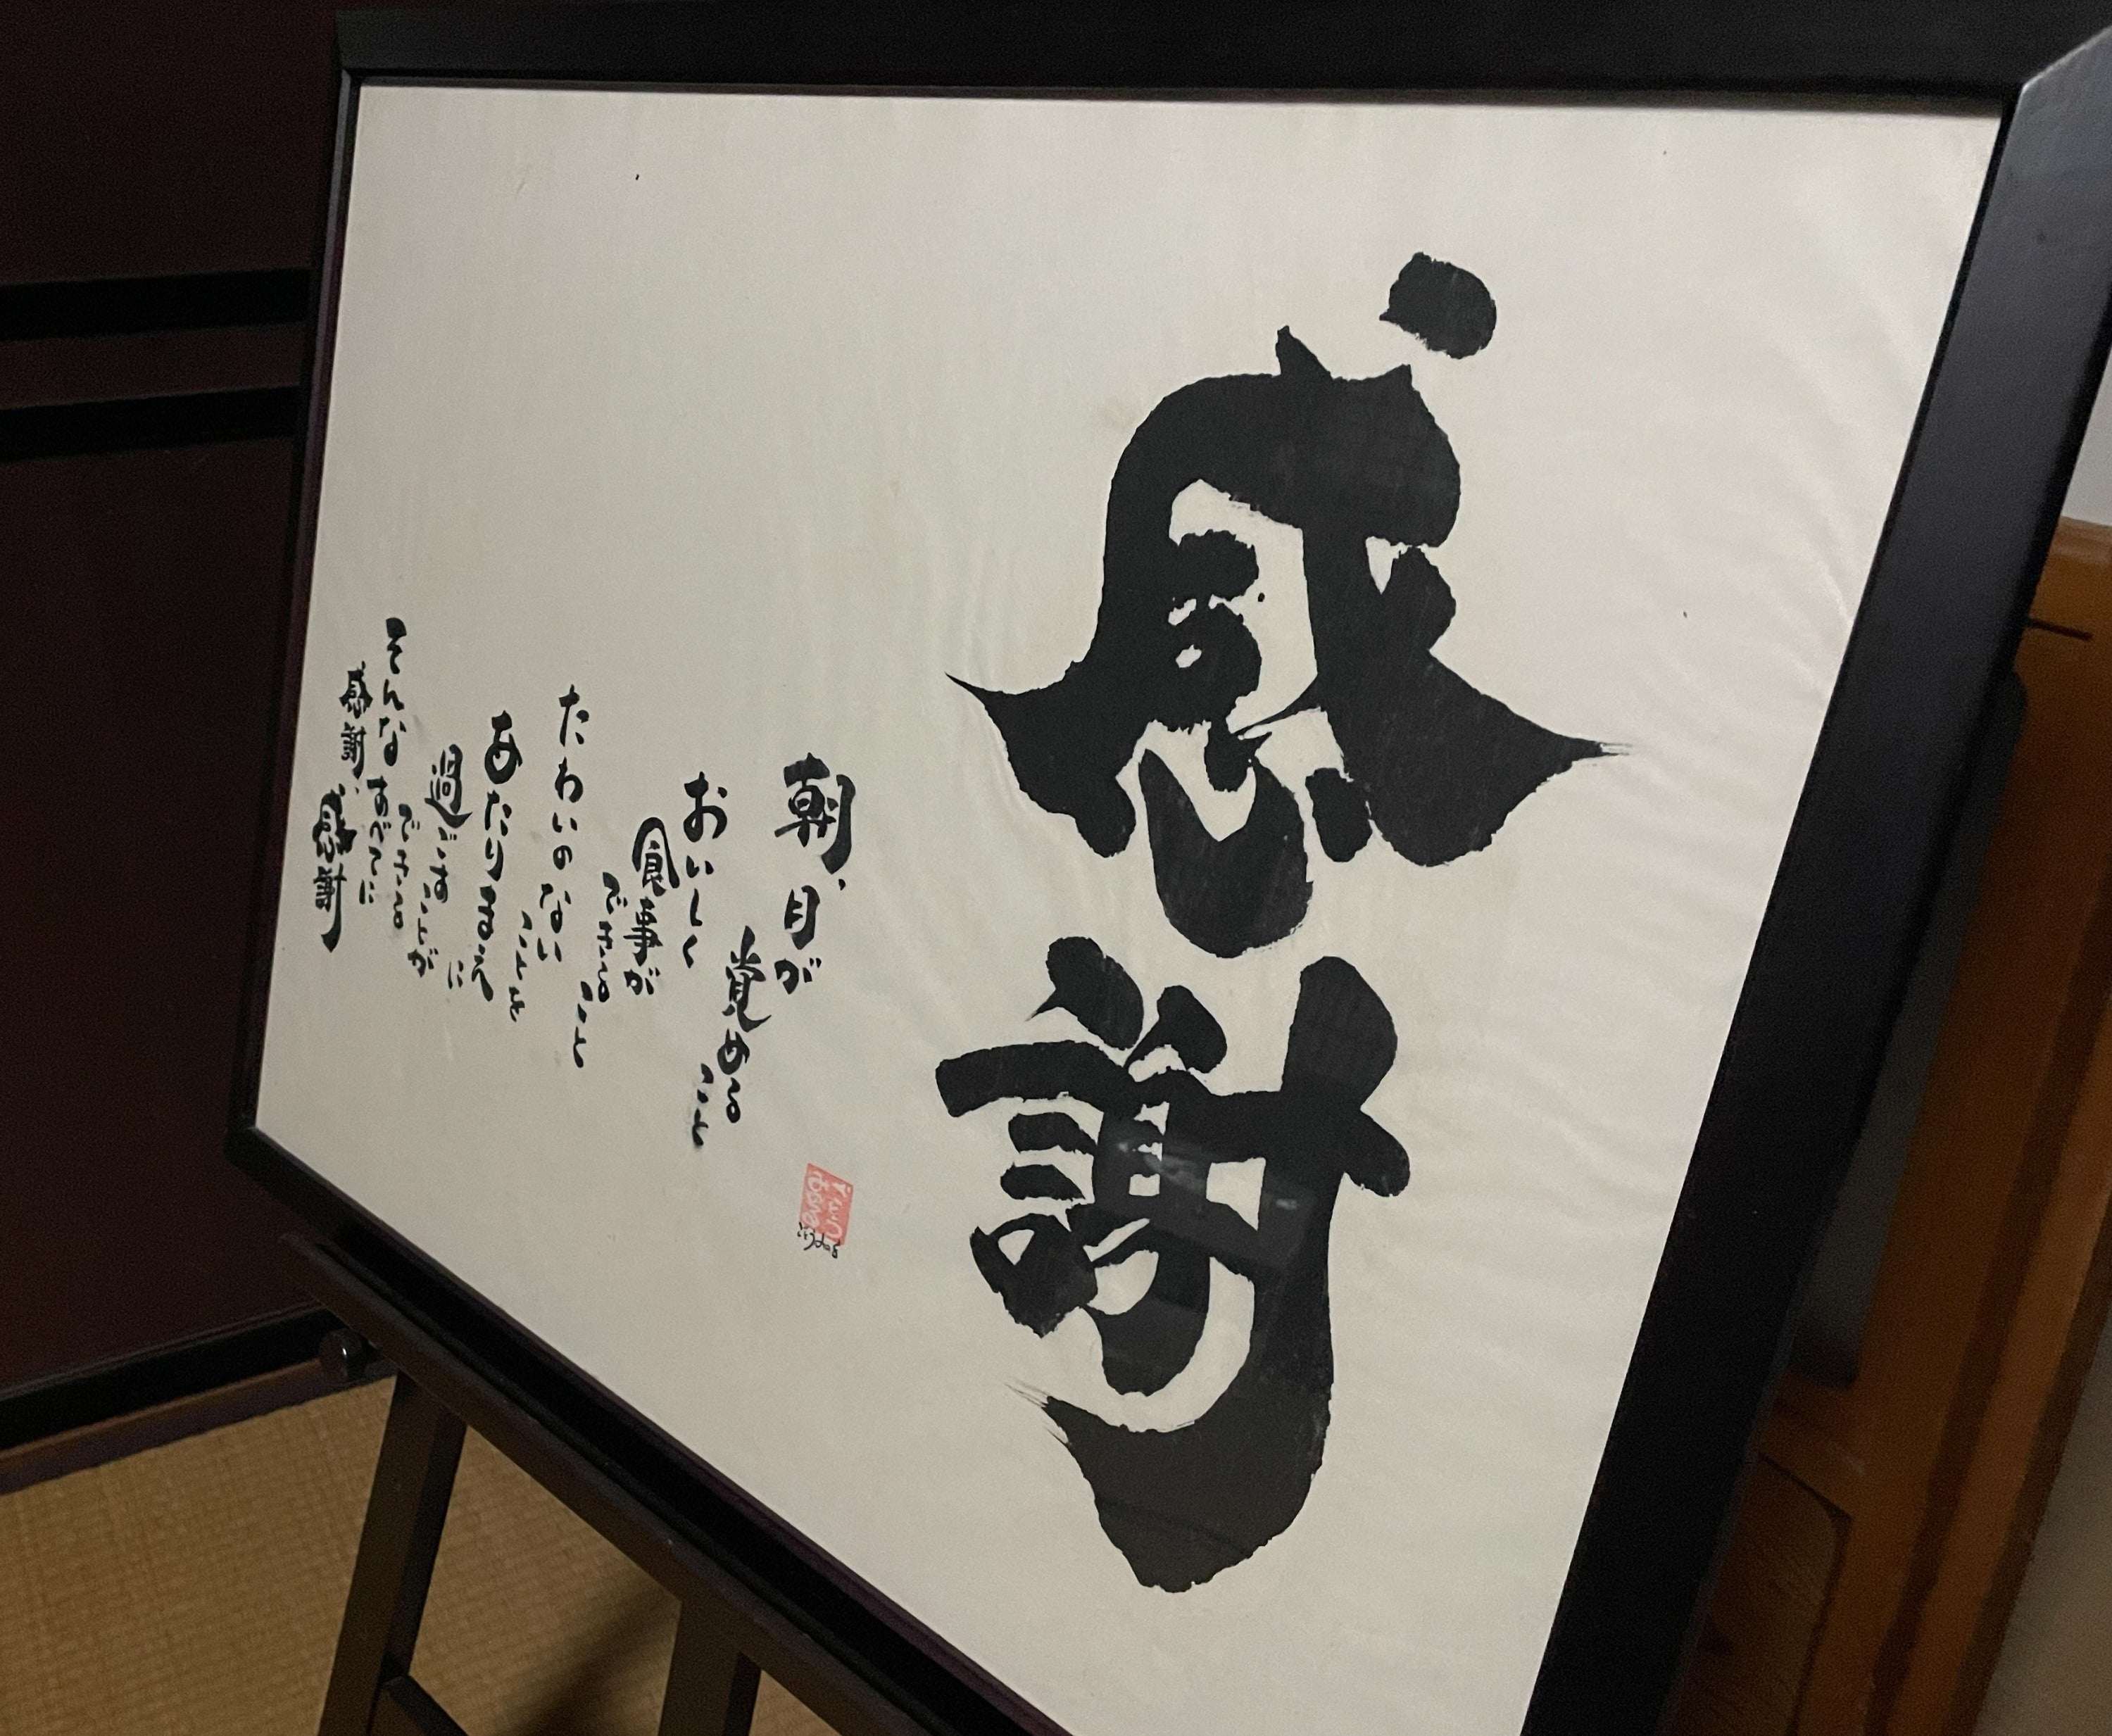 感謝
朝、目が
覚める
こと
おいしく
食事が
できる
こと
たわいのない
ことを
あたりまえ
に
過ごす
ことが
できる
そんな
すべてに
感謝、
感謝